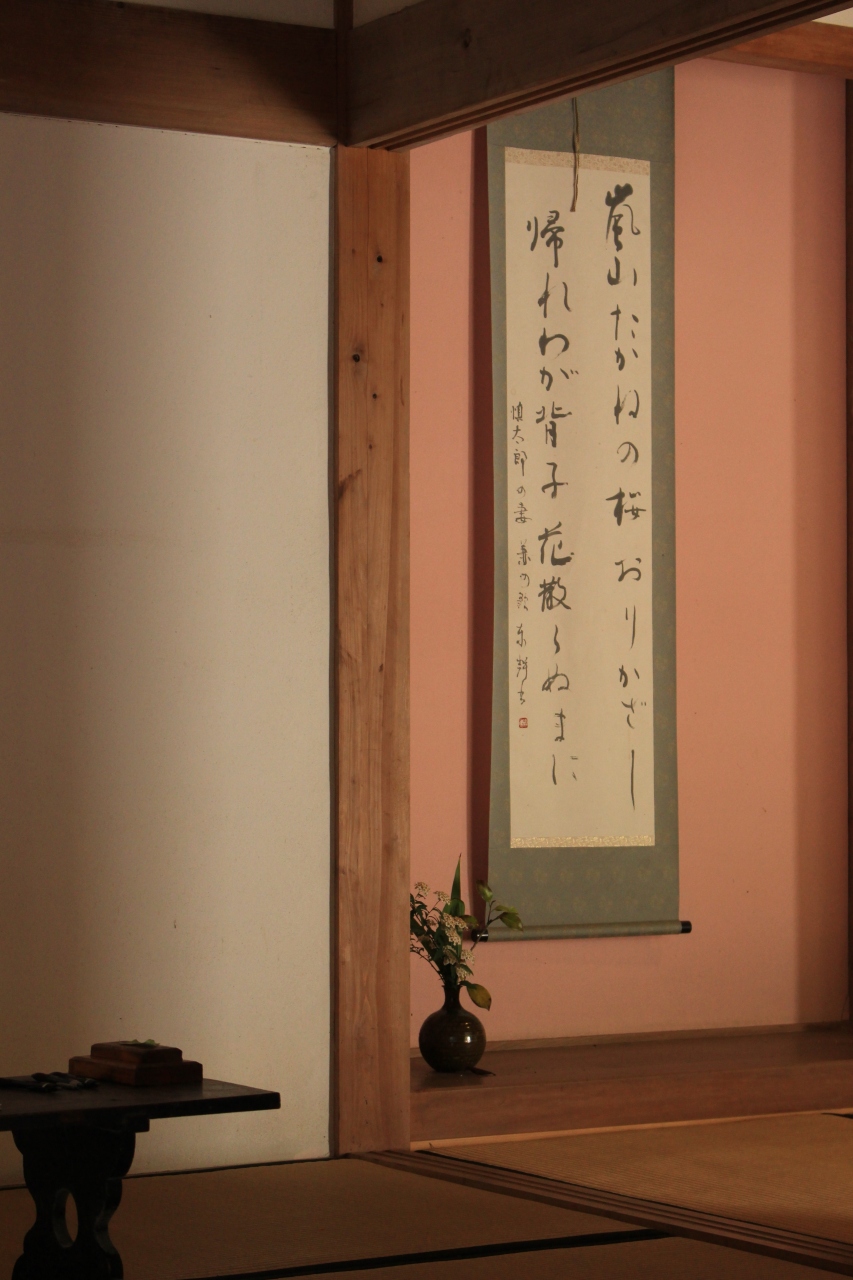 嵐山たかねの桜 おりかざし
帰れわが背子 花散らぬまに
慎太郎の妻 兼の歌